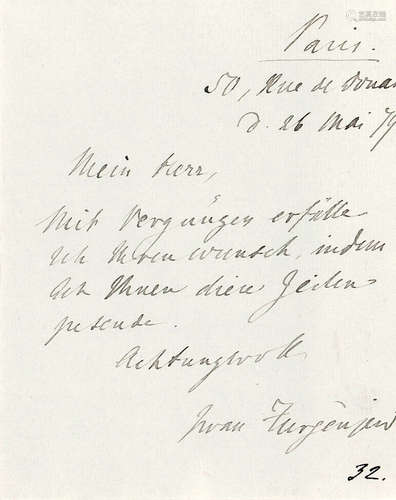 Paris.
50, Rue de Douai
d. 26 Mai 79
Mein Herr,
Mit Vergnügen erfülle
ich Ihren Wunsch, indem
ich Ihnen diese Zeilen
zusende.
Achtungsvoll
Iwan Turgénjew
32.